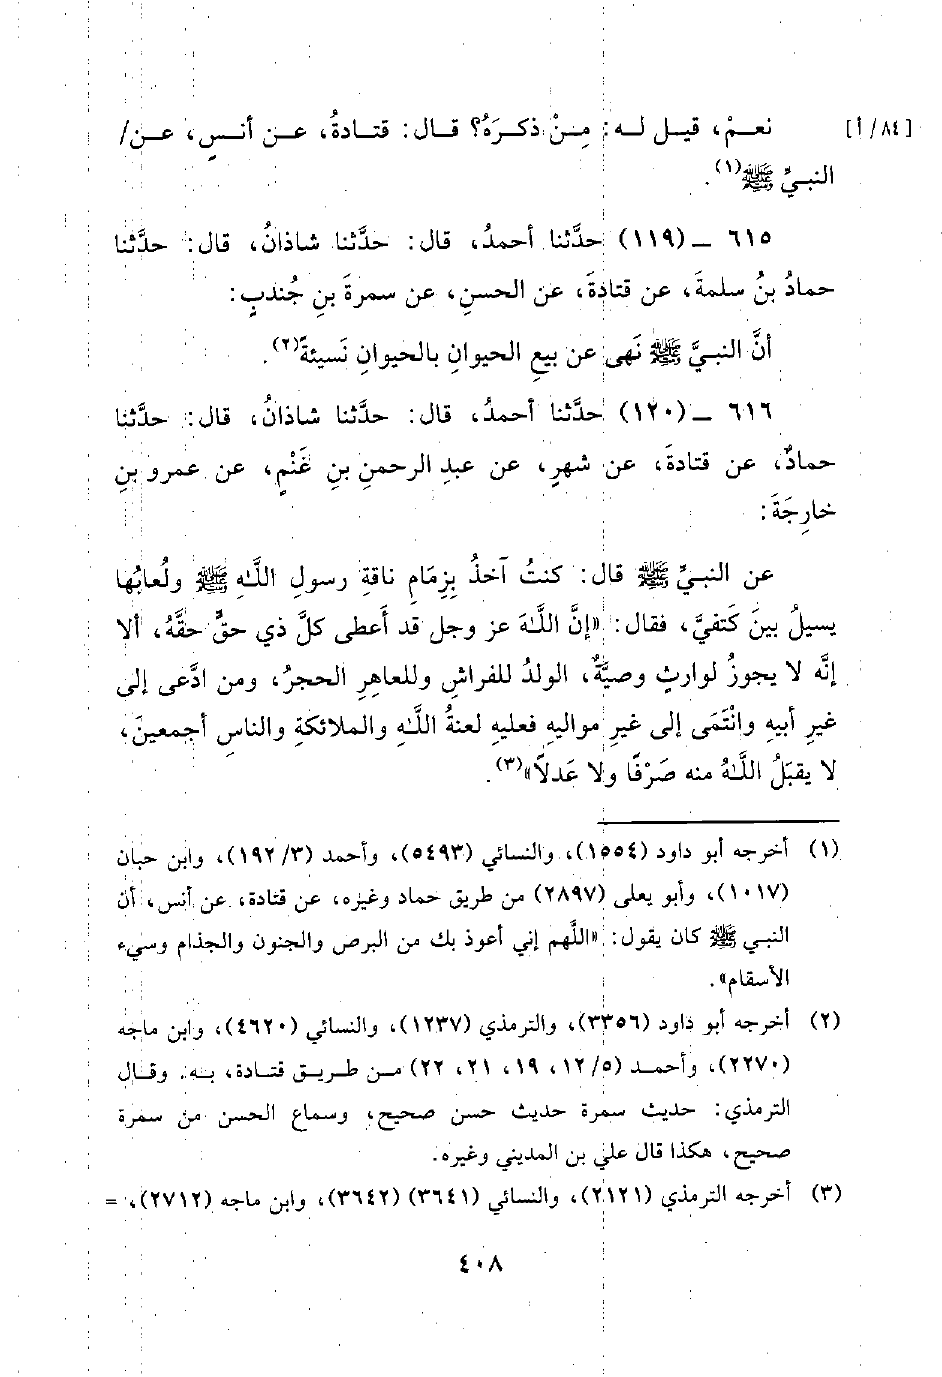 [٨٤/أ] نعـمْ، قيـل لـه: مِـنْ ذكـرَهُ؟ قـال: قتـادةُ، عـن أنـسٍ، عـن/
النبيِّ ﷺ(١).
٦١٥ ـ (١١٩) حدَّثنا أحمدُ، قال: حدَّثنا شاذانُ، قال: حدَّثنا
حمادُ بنُ سلمةَ، عن قتادةَ، عن الحسنِ، عن سمرةَ بنِ جُندبٍ:
أنَّ النبيَّ ﷺ نَهى عن بيعِ الحيوانِ بالحيوانِ نَسيئةً(٢).
٦١٦ ـ (١٢٠) حدَّثنا أحمدُ، قال: حدَّثنا شاذانُ، قال: حدَّثنا
حمادٌ، عن قتادةَ، عن شهرٍ، عن عبدِ الرحمنِ بنِ غَنْمٍ، عن عمرِو بنِ
خارِجَةَ:
عن النبيِّ ﷺ قال: كنتُ آخذُ بِزِمَامِ ناقةِ رسولِ اللَّهِ ﷺ ولُعابُها
يسيلُ بينَ كَتفيَّ، فقال: «إنَّ اللَّهَ عز وجل قد أَعطى كلَّ ذي حقٍّ حقَّهُ، ألا
إنَّه لا يجوزُ لوارثٍ وصيَّةٌ، الولدُ للفراشِ وللعاهِرِ الحجرُ، ومن ادَّعى إلى
غيرِ أبيه وانْتَمَى إلى غيرِ مواليهِ فعليهِ لعنةُ اللَّهِ والملائكةِ والناسِ أجمعينَ،
لا يقبَلُ اللَّهُ منه صَرْفًا ولا عَدلًا»(٣).
(١) أخرجه أبو داود (١٥٥٤)، والنسائي (٥٤٩٣)، وأحمد (٣/ ١٩٢)، وابن حبان
(١٠١٧)، وأبو يعلى (٢٨٩٧) من طريق حماد وغيره، عن قتادة، عن أنس، أن
النبي ﷺ كان يقول: «اللَّهم إني أعوذ بك من البرص والجنون والجذام وسيء
الأسقام».
(٢) أخرجه أبو داود (٣٣٥٦)، والترمذي (١٢٣٧)، والنسائي (٤٦٢٠)، وابن ماجه
(٢٢٧٠)، وأحمـد (٥/ ١٢، ١٩، ٢١، ٢٢) مـن طـريـق قتـادة، بـه. وقـال
الترمذي: حديث سمرة حديث حسن صحيح، وسماع الحسن من سمرة
صحيح، هكذا قال علي بن المديني وغيره.
(٣) أخرجه الترمذي (٢١٢١)، والنسائي (٣٦٤١) (٣٦٤٢)، وابن ماجه (٢٧١٢)، =
٤٠٨